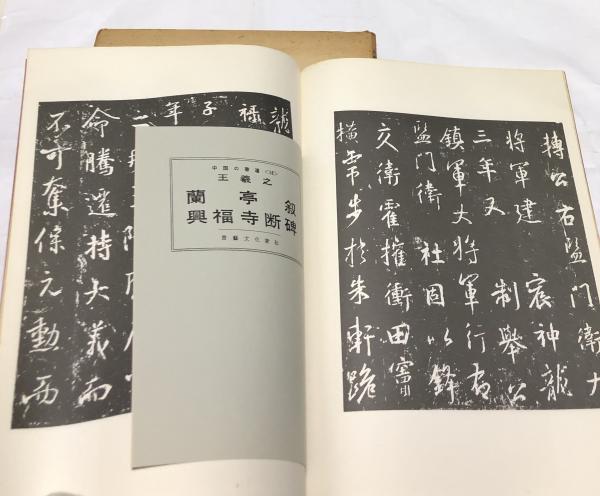 轉公右監門衛大
將軍建 宸神龍
三年又 制舉公
鎮軍大將軍行右
監門衛 社固以鋒
交衛霍擁衝田竇
步於朱軒
祿
子
年
命騰遷持大義而
不可奪保元勳而
中国の書道
王羲之
蘭亭叙
興福寺断碑
書藝文化新社